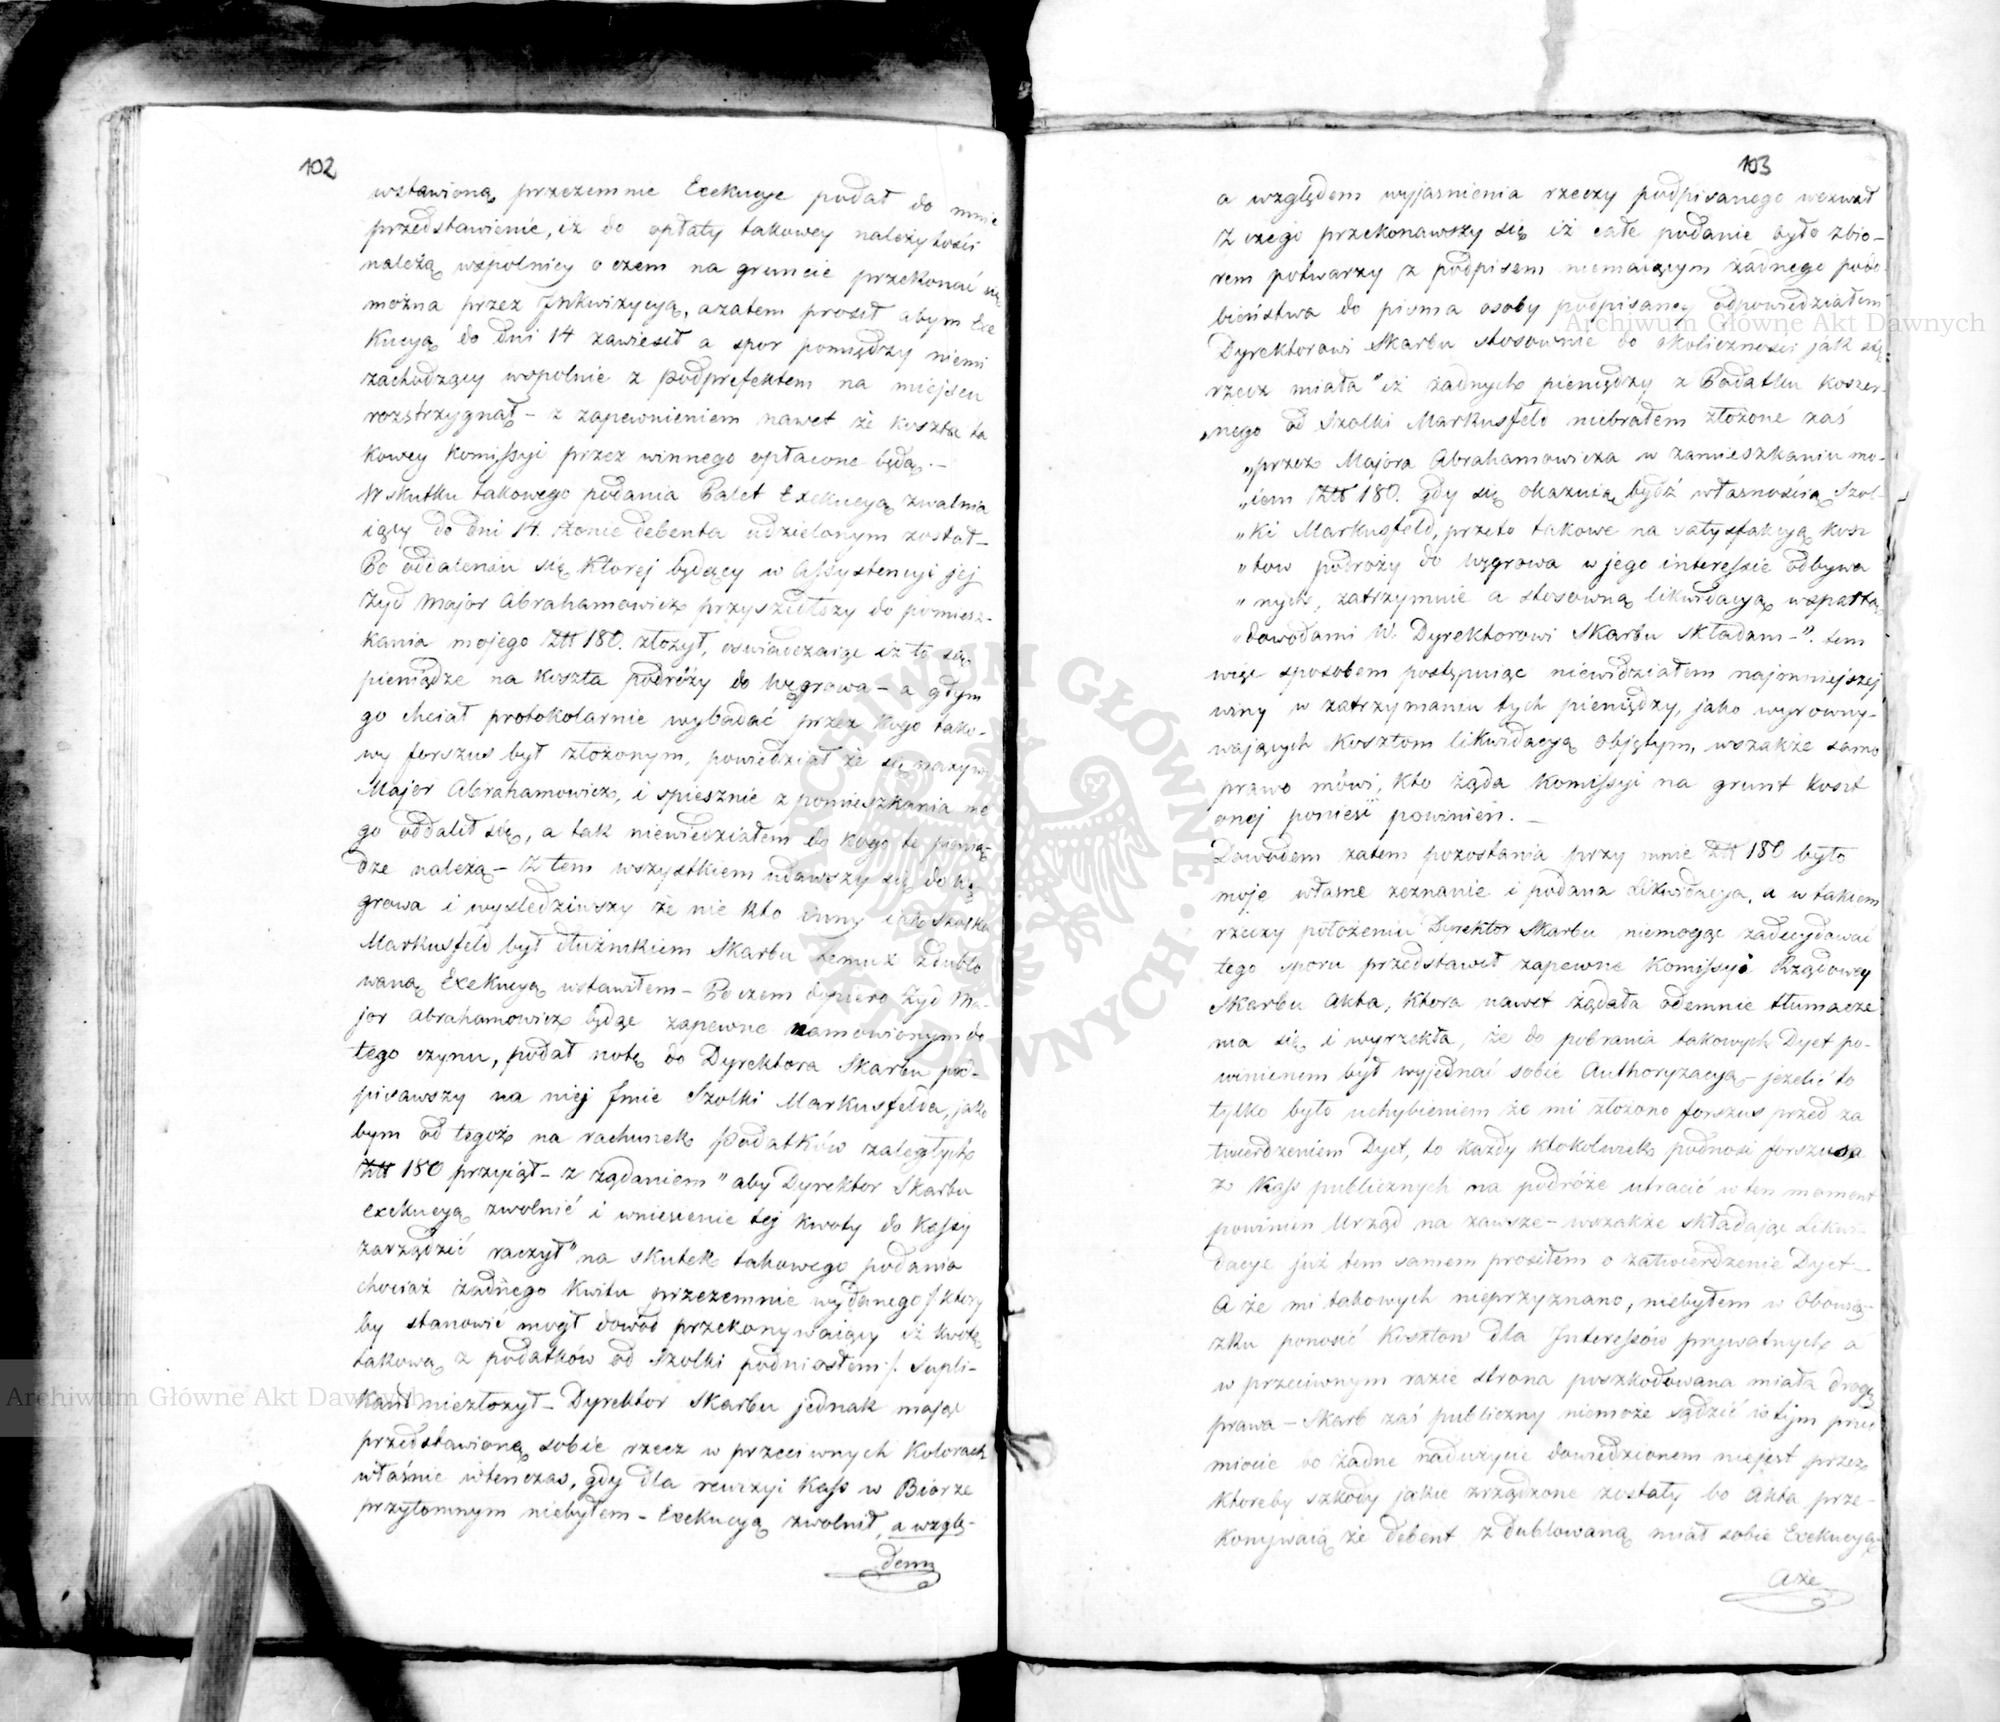 102
wstawioną przezemnie Exekucye podał do mnie
przedstawienie, iż do opłaty takowey należytości
należą wspolnicy o czem na gruncie przekonać się
można przez Inkwizycyą, azatem prosił abym Exe
kucyą do dni 14 zawiesił a spor pomiędzy niemi
zachodzący wspolnie z Podprefektem na miejscu
rozstrzygnął – z zapewnieniem nawet że koszta ta
kowey Komissyi przez winnego opłacone będą. –
W skutku takowego podania Palet Exekucyą zwalnia
iący do dni 14. żonie debenta udzielonym został –
Po oddaleniu się ktorej będący w Assystencyi jej
żyd Major Abrahamowicz przyszedłszy do pomiesz-
kania mojego Złł 180. złożył, oswiadczaiąc iż to są
pieniądze na koszta podróży do Węgrowa – a gdym
go chciał protokolarnie wybadać przez kogo tako-
wy forszus był złożonym, powiedział że się nazywa
Majer Abrahamowicz, i spiesznie z pomieszkania me
go oddalił się, a tak niewiedziałem do kogo te pienią-
dze należą – Z tem wszystkiem udawszy się do Wę
growa i wysledziwszy że nie kto inny iak Szolka
Markusfeld był dłużnikiem Skarbu temuż zdublo
waną Exekucyą wstawiłem – Po czem dopiero żyd Ma-
jor Abrahamowicz będąc zapewne namowionym do
tego czynu, podał notę do Dyrektora Skarbu pod-
pisawszy na niej Imie Szolki Markusfelda, jako
bym od tegoż na rachunek Podatków zaległych
Złł 180 przyiął – z żądaniem "aby Dyrektor Skarbu
exekucyą zwolnić i wniesienie tej kwoty do Kassy
zarządzić raczył" na skutek takowego podania
chociaż żadnego kwitu przezemnie wydanego /: ktory
by stanowić mogł dowód przekonywaiący iż kwotę
takową z podatków od Szolki podniosłem :/ Supli-
kant niezłożył – Dyrektor Skarbu jednak mając
przedstawioną sobie rzecz w przeciwnych kolorach
właśnie wtenczas, gdy dla rewizyi Kass w Biórze
przytomnym niebyłem – Exekucyą zwolnił, a wzglę-
dem
103
a względem wyjasnienia rzeczy podpisanego wezwał
Z czego przekonawszy się iż całe podanie było zbio-
rem potwarzy z podpisem niemaiącym żadnego podo-
bieństwa do pisma osoby podpisaney odpowiedziałem
Dyrektorowi Skarbu stosownie do okoliczności jak się
rzecz miała "iż żadnych pieniędzy z Podatku koszer-
„nego od Szolki Markusfeld niebrałem złożone zaś
„przez Majora Abrahamowicza w zamieszkaniu mo-
„iem Złł 180. gdy się okazuią bydź własnością Szol-
„ki Markusfeld, przeto takowe na satysfakcyą kosz
„tow podroży do Węgrowa w jego interessie odbywa
„nych, zatrzymuie a stosowną likwidacyą wspartą
„dowodami W. Dyrektorowi Skarbu składam –". tem
więc sposobem postępuiąc niewidziałem najmniejszej
winy w zatrzymaniu tych pieniędzy, jako wyrowny-
wających kosztom likwidacyą objętym, wszakże samo
prawo mówi, kto żąda Komissyi na grunt koszt
onej ponieść powinien. –
Dowodem zatem pozostania przy mnie Złł 180 było
moje własne zeznanie i podana Likwidacya, a w takiem
rzeczy położeniu Dyrektor Skarbu niemogąc zadecydować
tego sporu przedstawił zapewne Komissyi Rządowey
Skarbu Akta, ktora nawet żądała odemnie tłumacze
nia się i wyrzekła, że do pobrania takowych Dyet po-
winienem był wyjednać sobie Authoryzacyą – jeżelić to
tylko było uchybieniem że mi złożono forszus przed za
twierdzeniem Dyet, to każdy ktokolwiek podnosi forszusa
z Kass publicznych na podróże utracić w ten moment
powinien Urząd na zawsze – wszakże składając Likwi-
dacye już tem samem prosiłem o zatwierdzenie Dyet –
A że mi takowych nieprzyznano, niebyłem w Obowią-
zku ponosić kosztow dla Interessów prywatnych a
w przeciwnym razie strona poszkodowana miała drogę
prawa – Skarb zaś publiczny niemoże sądzić w tym przed
miocie bo żadne nadużycie dowiedzionem niejest przez
ktoreby szkody jakie zrządzone zostały bo Akta prze-
konywaią że debent zdublowaną miał sobie Exekucyą –
A że
Archiwum Główne Akt Dawnych
Archiwum Główne Akt Dawnych
ARCHIWUM GŁÓWNE AKT DAWNYCH